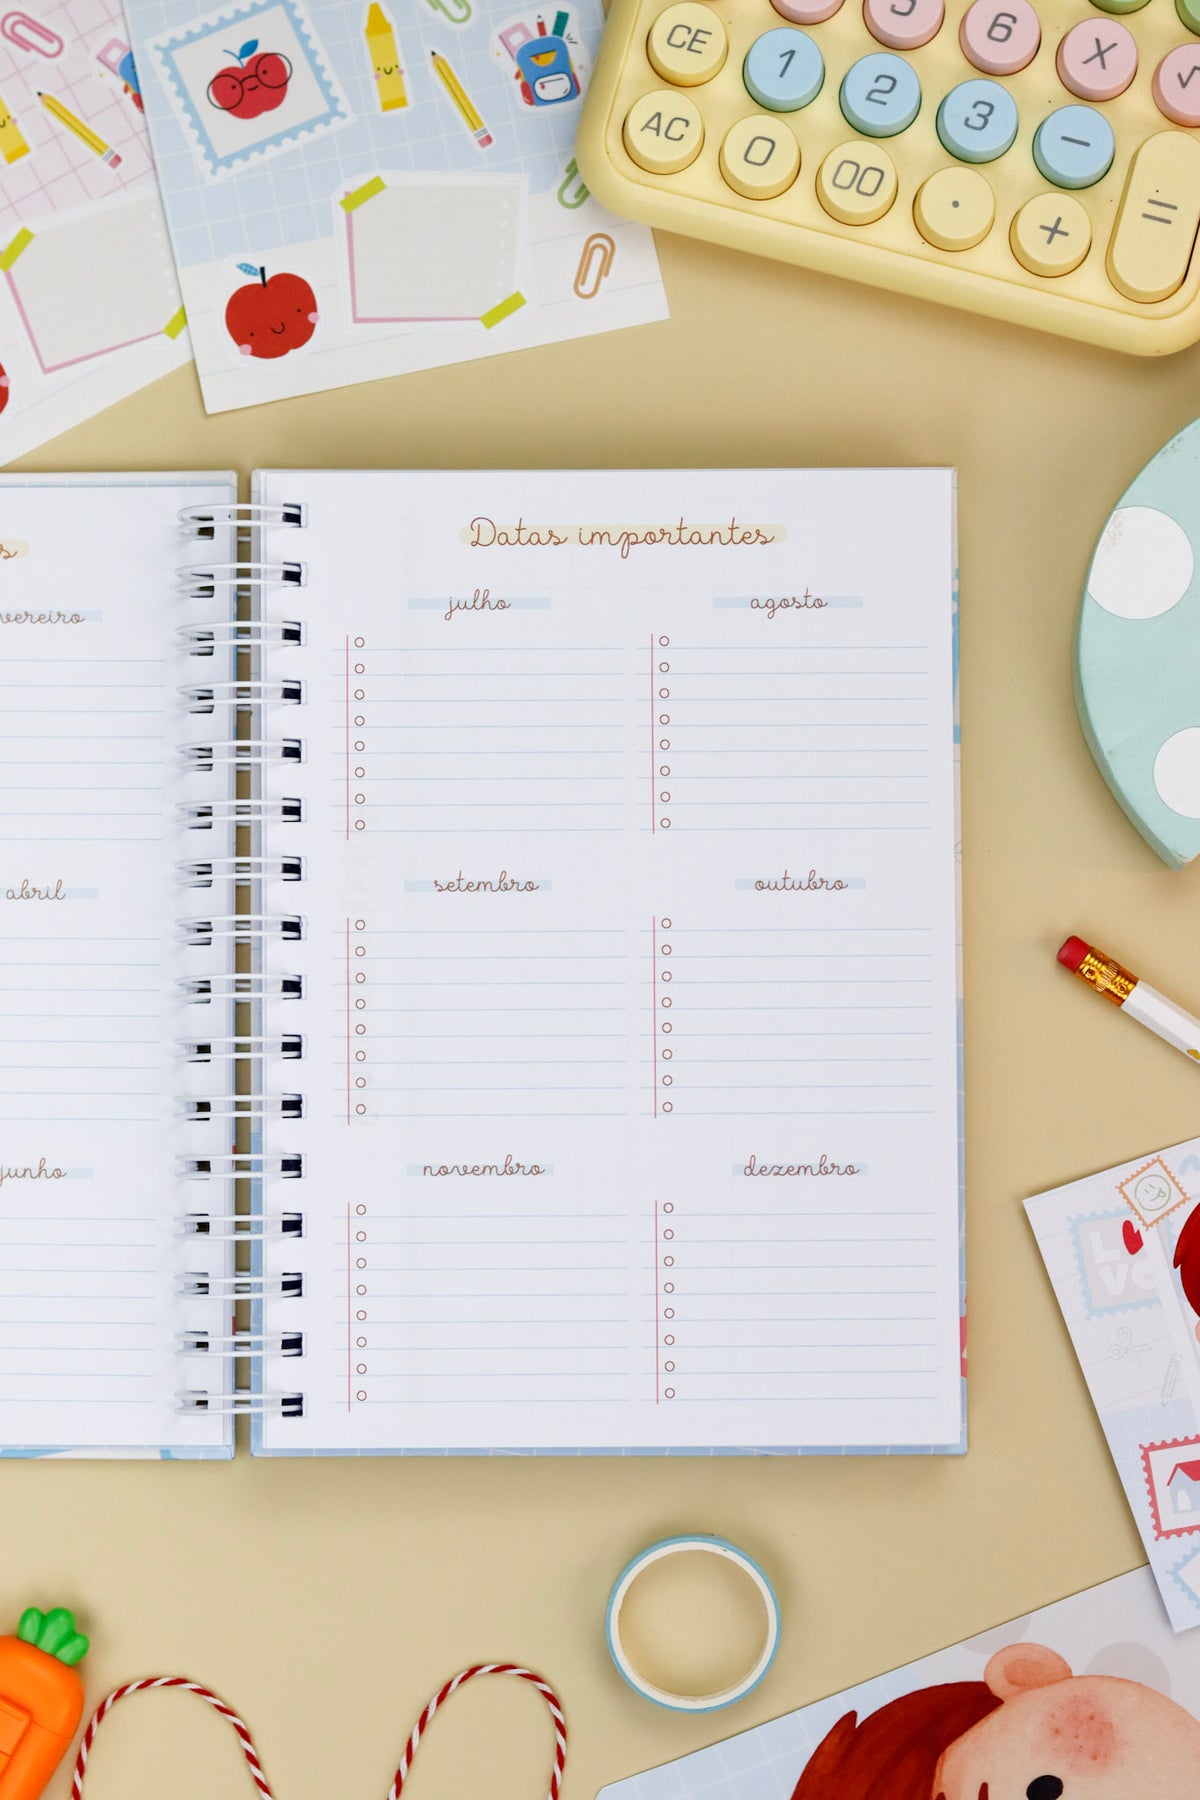 5
6
X
√
CE
1
2
3
−
AC
0
00
.
+
=
Datas importantes
julho
agosto
abril
setembro
outubro
junho
novembro
dezembro